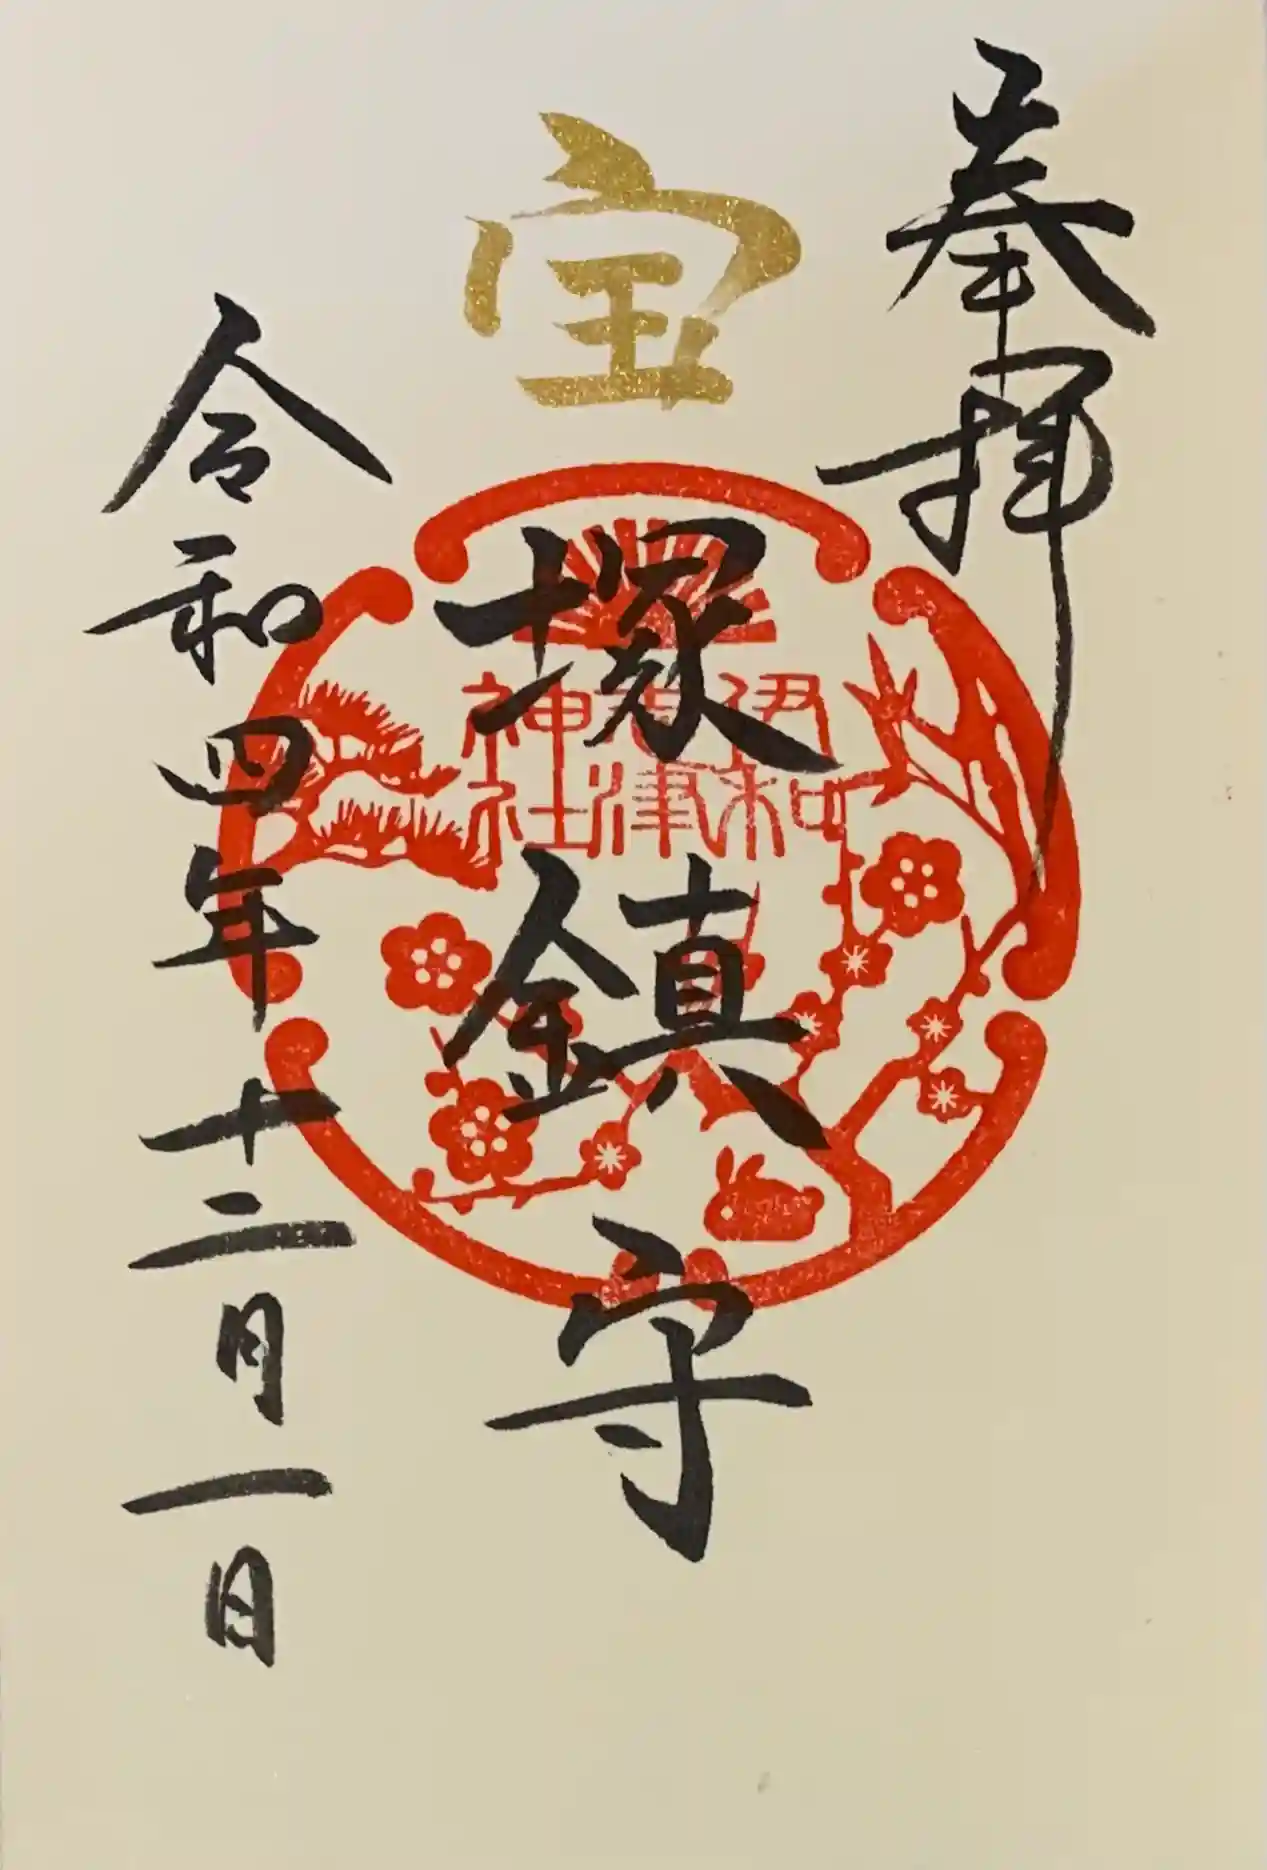 奉拝
宝
塚鎮守
伊和
志津
神社
令和四年十二月一日